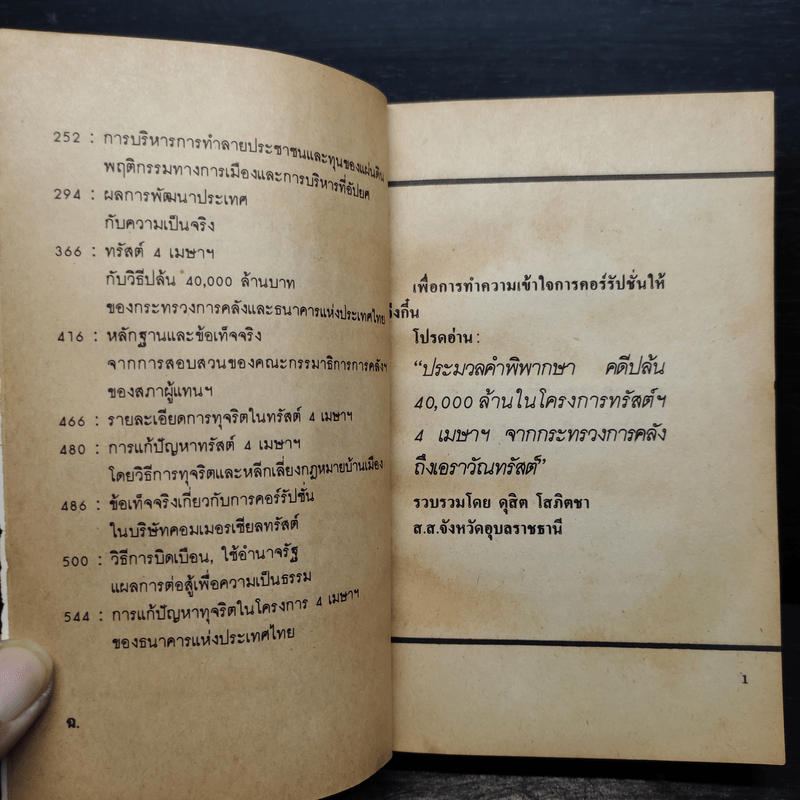 252 : การบริหารการทำลายประชาชนและทุนของแผ่นดิน
พฤติกรรมทางการเมืองและการบริหารที่อัปยศ
294 : ผลการพัฒนาประเทศ
กับความเป็นจริง
366 : ทรัสต์ 4 เมษาฯ
กับวิธีปล้น 40,000 ล้านบาท
ของกระทรวงการคลังและธนาคารแห่งประเทศไทย
416 : หลักฐานและข้อเท็จจริง
จากการสอบสวนของคณะกรรมาธิการการคลังฯ
ของสภาผู้แทนฯ
466 : รายละเอียดการทุจริตในทรัสต์ 4 เมษาฯ
480 : การแก้ปัญหาทรัสต์ 4 เมษาฯ
โดยวิธีการทุจริตและหลีกเลี่ยงกฎหมายบ้านเมือง
486 : ข้อเท็จจริงเกี่ยวกับการคอร์รัปชั่น
ในบริษัทคอมเมอร์เชียลทรัสต์
500 : วิธีการบิดเบือน, ใช้อำนาจรัฐ
แผลการต่อสู้เพื่อความเป็นธรรม
544 : การแก้ปัญหาทุจริตในโครงการ 4 เมษาฯ
ของธนาคารแห่งประเทศไทย
ฉ.
เพื่อการทำความเข้าใจการคอร์รัปชั่นให้
งกี๋น
โปรดอ่าน :
“ประมวลคำพิพากษา คดีปล้น
40,000 ล้านในโครงการทรัสต์ฯ
4 เมษาฯ จากกระทรวงการคลัง
ถึงเอราวัณทรัสต์”
รวบรวมโดย ดุสิต โสภิตชา
ส.ส.จังหวัดอุบลราชธานี
1